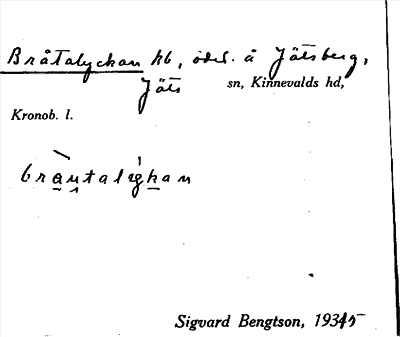 Bråtalyckan hb, ödel. å Jätsberg,
Jäts sn, Kinnevalds hd,
Kronob. l.
brantalykan
Sigvard Bengtson, 1935